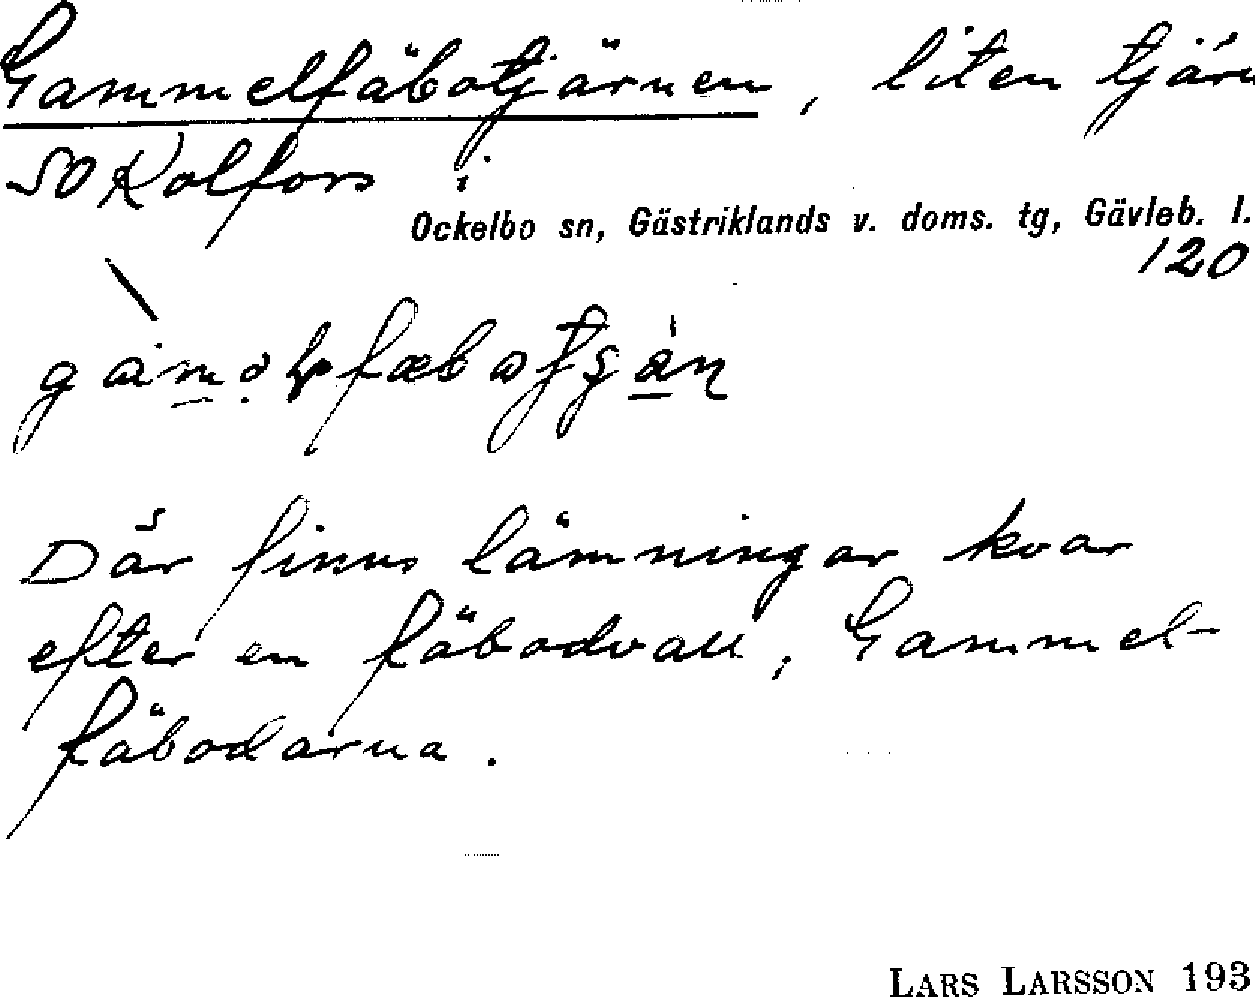 Gammelfäbotjärnen, liten tjärn
SO Kolfors i
Ockelbo sn, Gästriklands v. doms. tg, Gävleb. l.
120
Där finns lämningar kvar
efter en fäbodvall, Gammel-
fäbodarna.
LARS LARSSON 193